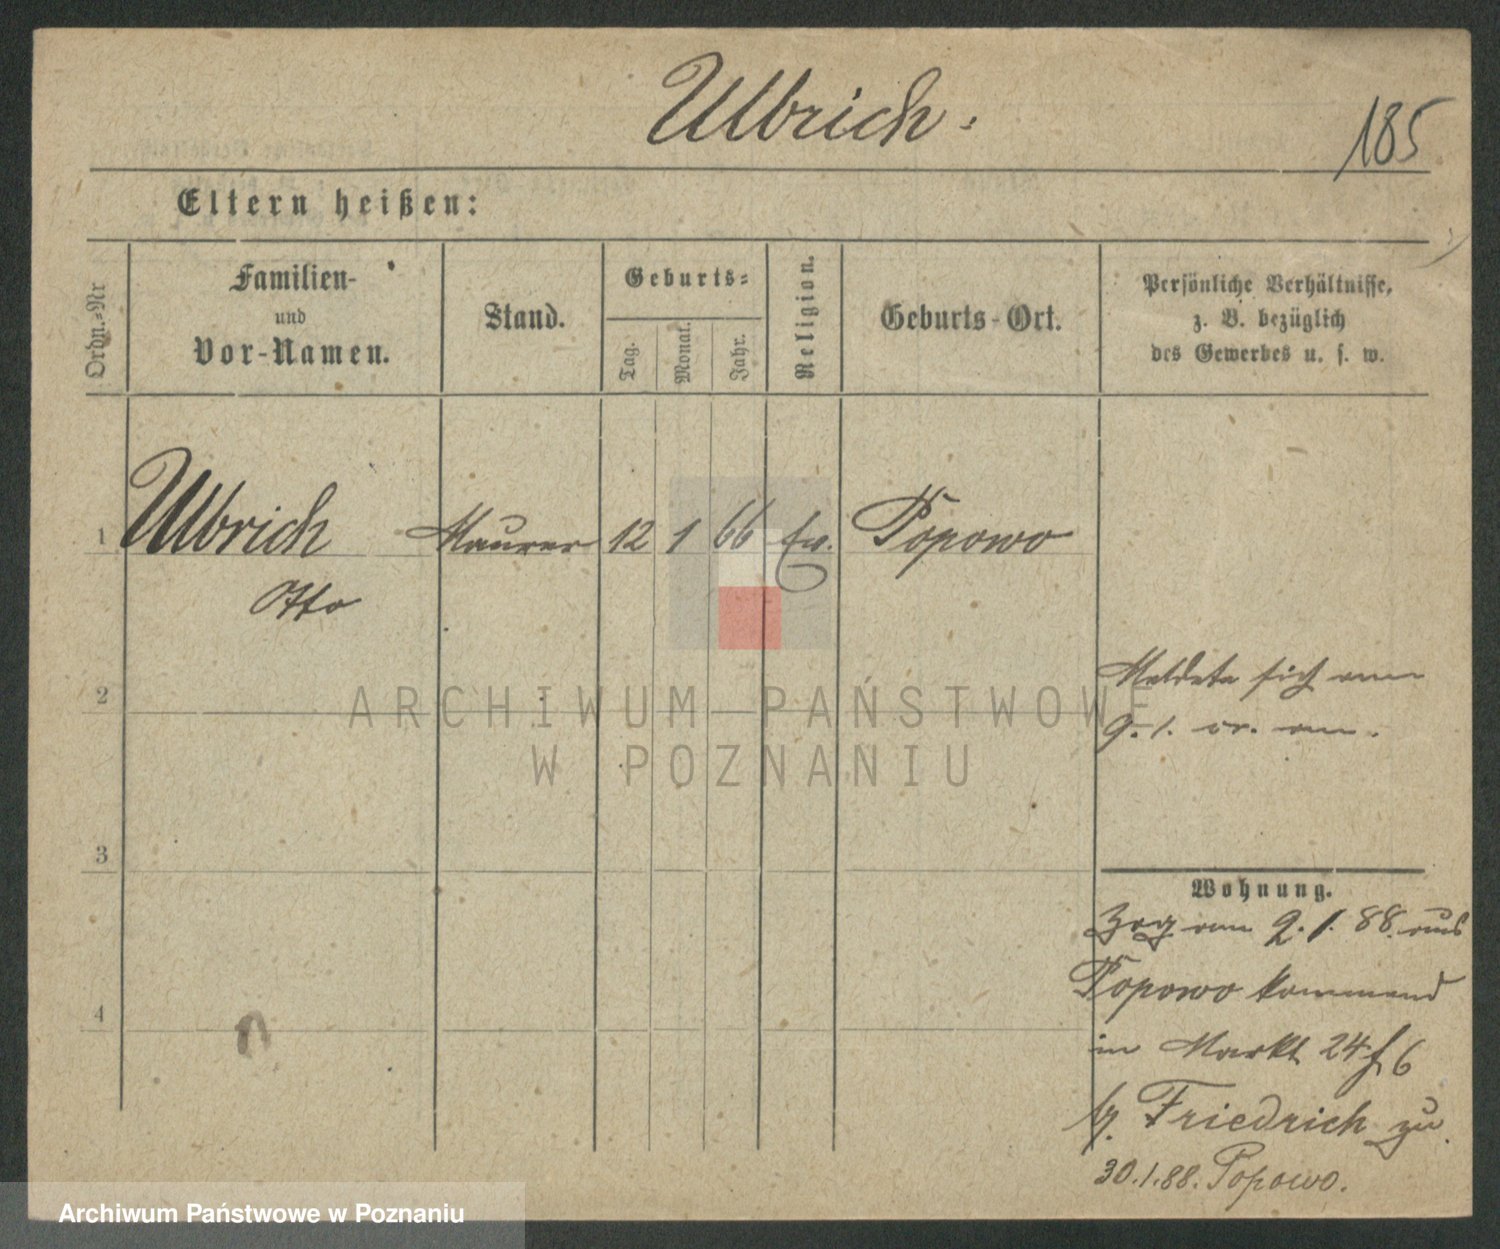 Ulbrich.
185
Eltern heißen:
Ordn.-Nr
Familien-
und
Vor-Namen.
Stand.
Geburts-
Tag.
Monat.
Jahr.
Religion.
Geburts-Ort.
Persönliche Verhältnisse,
z. B. bezüglich
des Gewerbes u. s. w.
1 Ulbrich Maurer 12 1 66 Ev. Popowo
Otto
2
3
4
Meldete sich am
9. 1. cr. an.
Wohnung.
Zog am 9. 1. 88. aus
Popowo kommend
in Markt 24 6
Friedrich zu.
30.1.88. Popowo.
ARCHIWUM PAŃSTWOWE
W POZNANIU
Archiwum Państwowe w Poznaniu